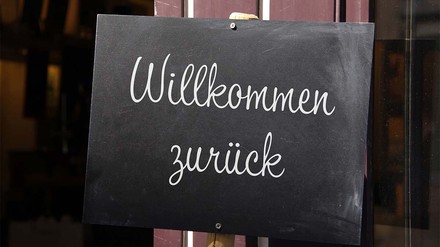 Willkommen
zurück